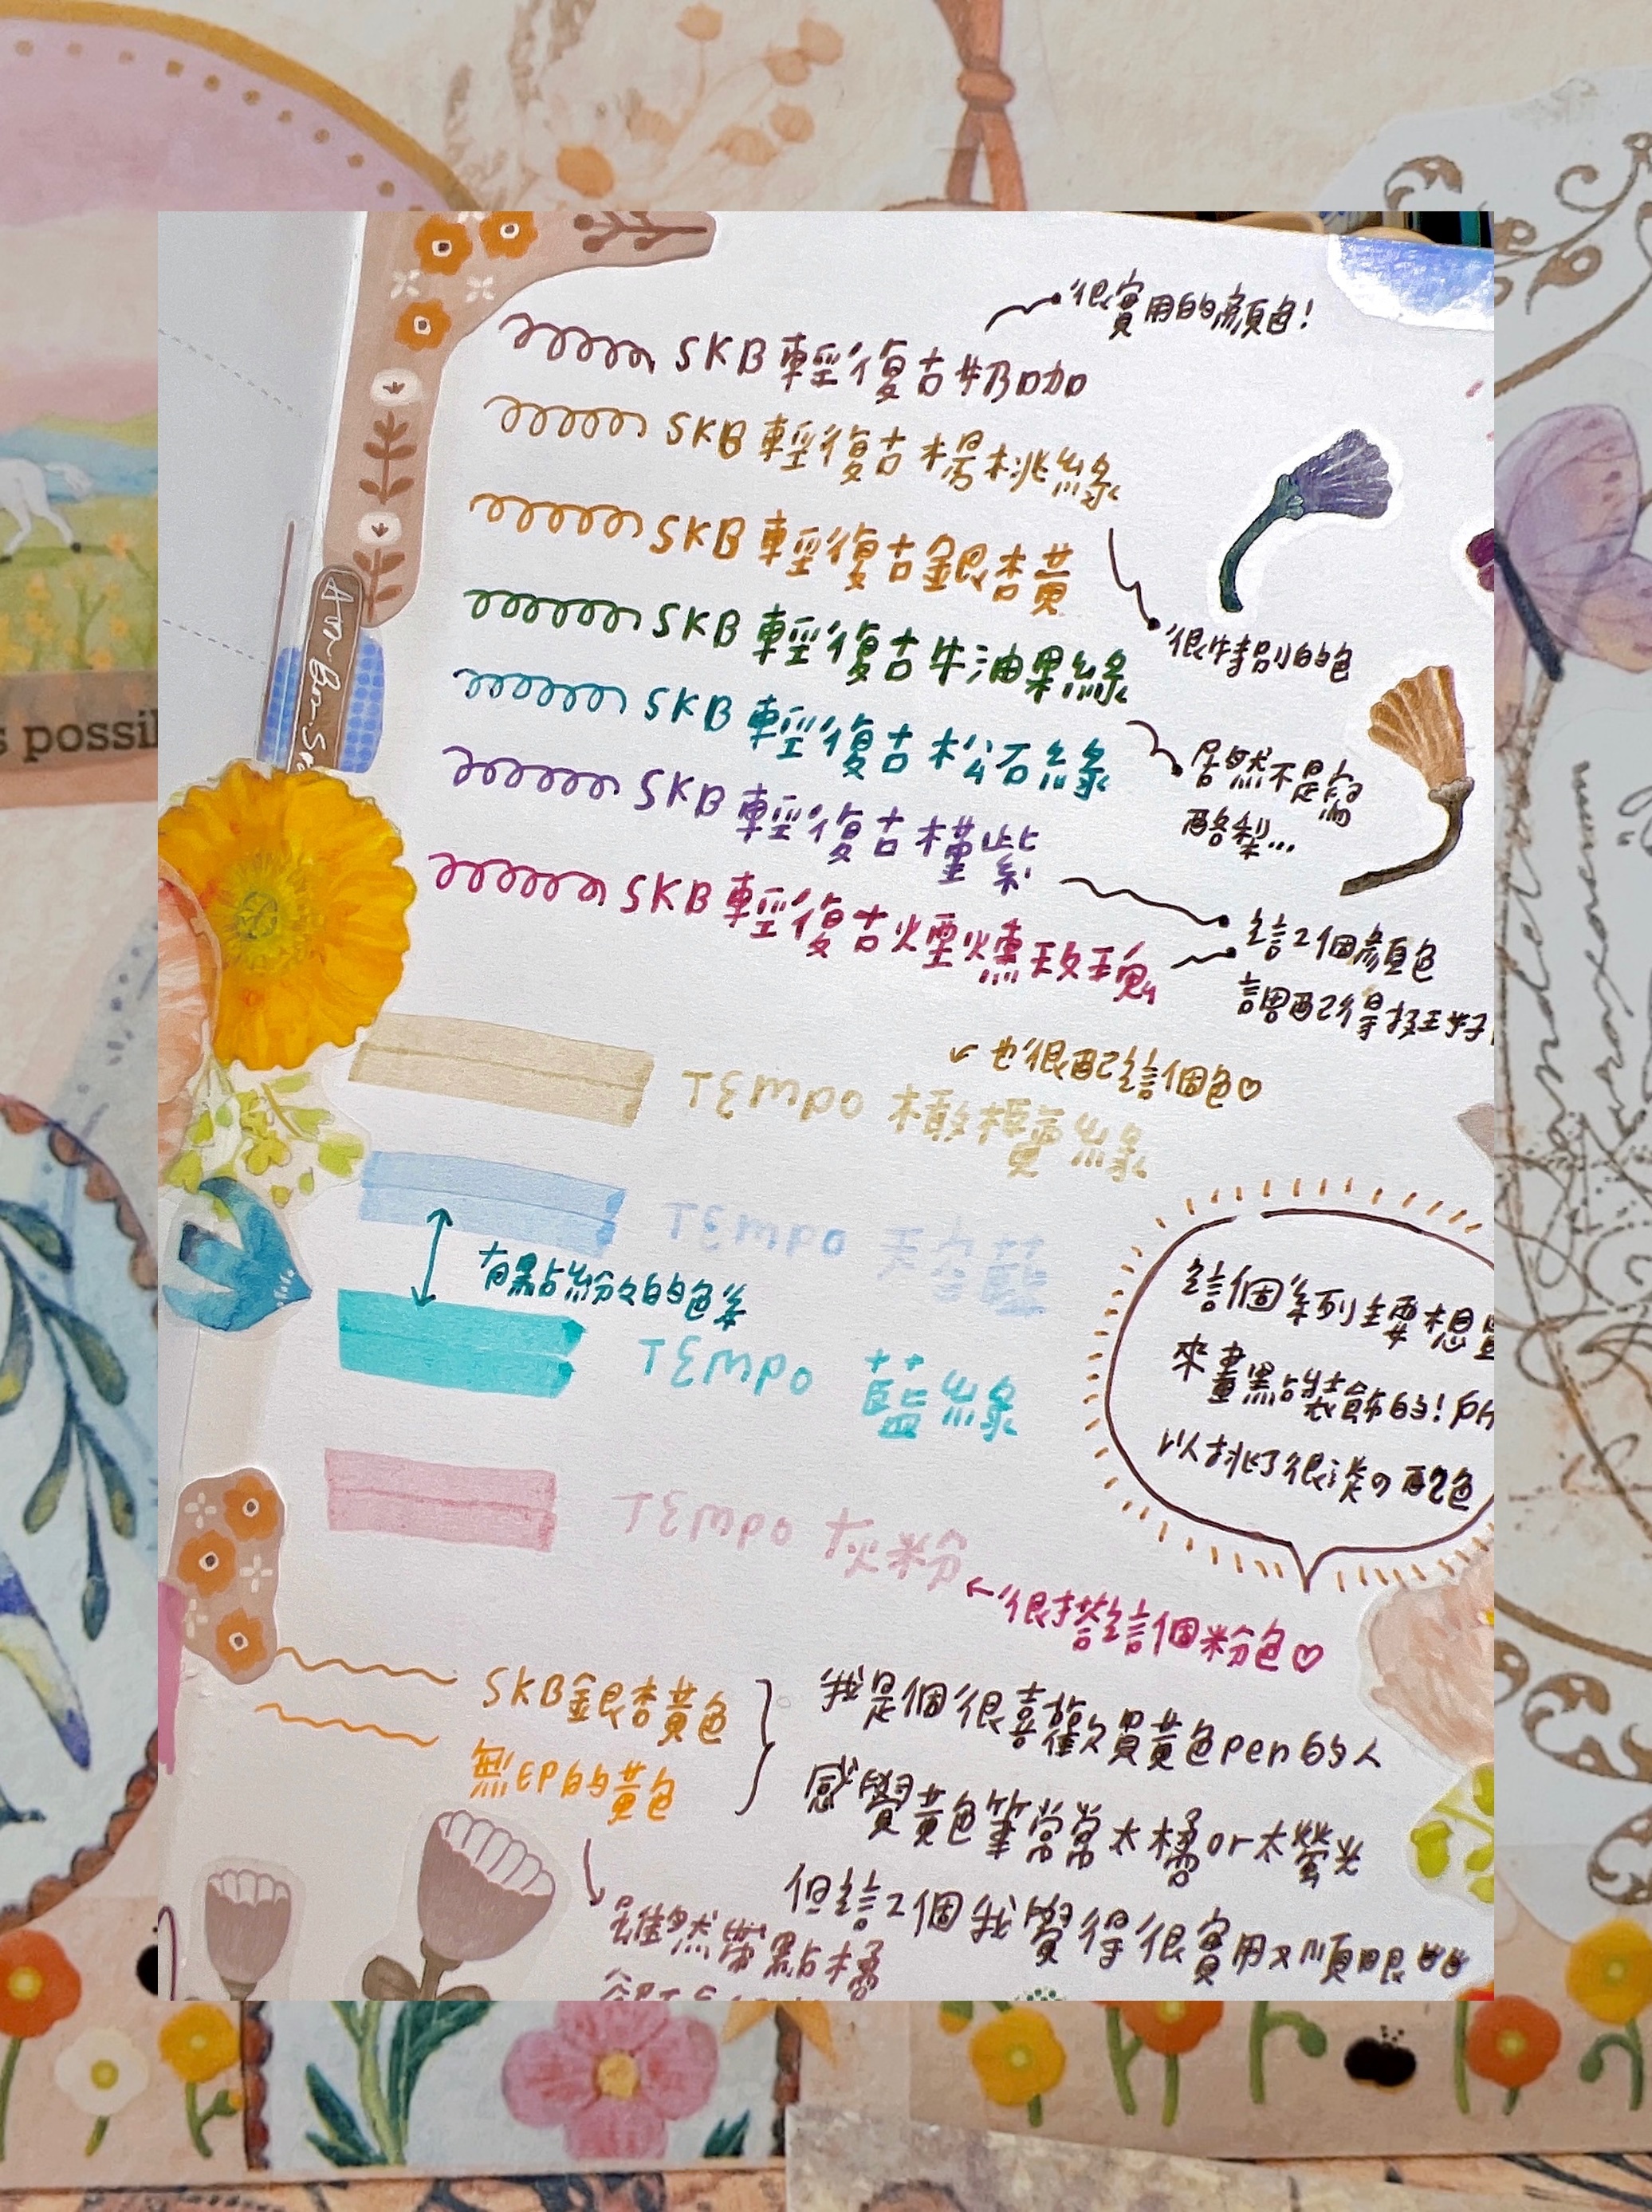 很實用的顏色!
SKB 輕復古奶咖
SKB 輕復古楊桃綠
SKB 輕復古銀杏黃
SKB 輕復古牛油果綠
很特別的色
SKB 輕復古松石綠
居然不是寫
酪梨...
SKB 輕復古槿紫
SKB 輕復古煙燻玫瑰
這2個顏色
調配得挺好
也很配這個色♡
TEMPO 橄欖綠
TEMPO 天空藍
有點紛紛的色系
TEMPO 藍綠
這個系列主要想
來畫點裝飾的!所
以挑了很淡の配色
TEMPO 灰粉
←很搭這個粉色♡
SKB銀杏黃色
無印的黃色
我是個很喜歡買黃色pen的人
感覺黃色筆常常太橘or太螢光
但這2個我覺得很實用又順眼
雖然帶點橘
s possi